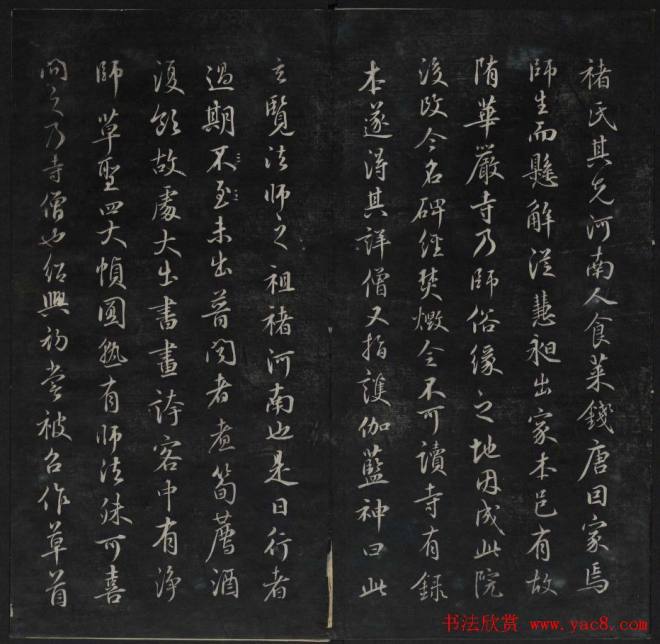 褚氏其先河南人食菜錢唐因家焉
師生而懸解從慧昶出家本邑有故
隋華嚴寺乃師俗緣之地因成此院
後改今名碑經焚燬今不可讀寺有錄
本遂得其詳僧又指護伽藍神曰此
玄覽法師之祖褚河南也是日行者
過期不至未出菩閔者煮筍薦酒
復飲故處大出書畫誇客中有淨
師草聖四大幀圓熟有師法殊可喜
問之乃寺僧也紹興初嘗被召作草首
书法欣赏 www.yac8.com